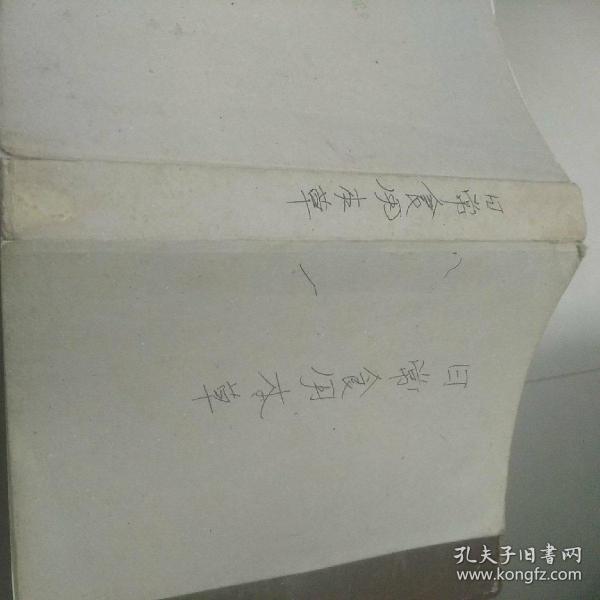 日常食用本草
日常食用本草
孔夫子旧书网
www.kongfz.com